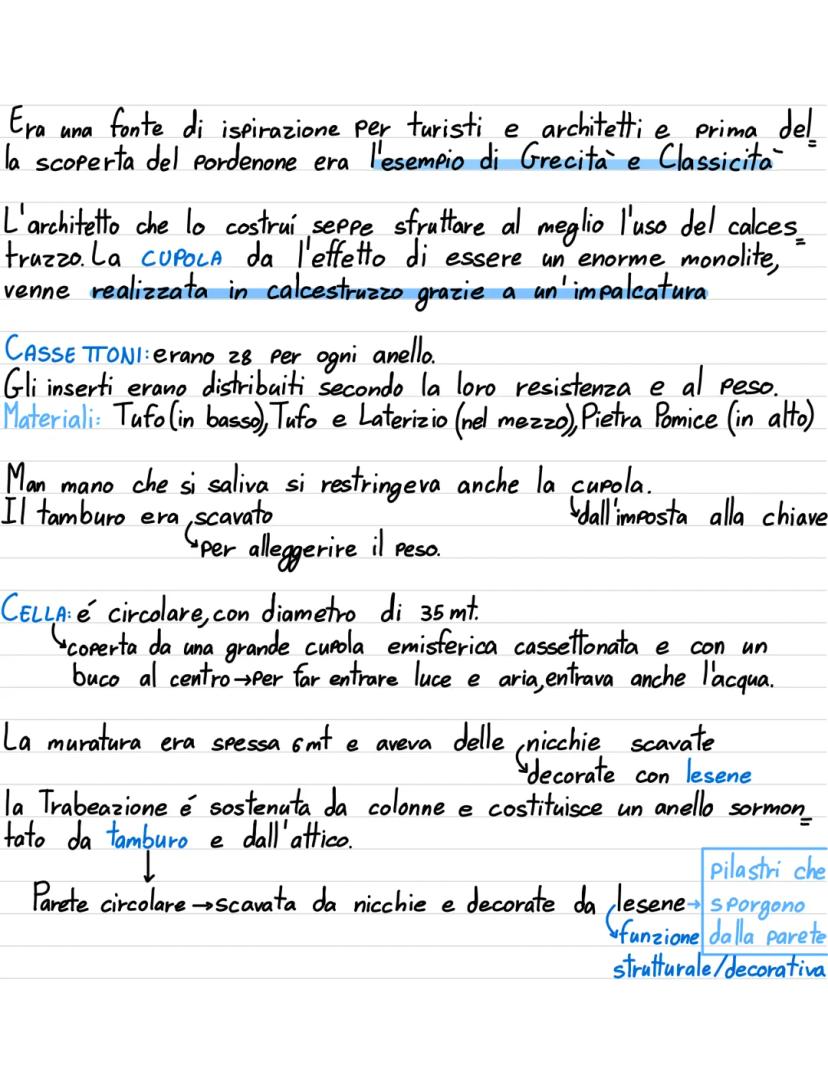 Era una fonte di ispirazione per turisti e architetti e prima del=
la scoperta del Pordenone era l'esempio di Grecità e Classicità
L'architetto che lo costruí seppe sfruttare al meglio l'uso del calces=
truzzo. La CUPOLA da l'effetto di essere un enorme monolite,
venne realizzata in calcestruzzo grazie a un'impalcatura
CASSETTONI: erano 28 per ogni anello.
Gli inserti erano distribuiti secondo la loro resistenza e al peso.
Materiali: Tufo (in basso), Tufo e Laterizio (nel mezzo), Pietra Pomice (in alto)
Man mano che si saliva si restringeva anche la cupola.
Il tamburo era scavato ↳dall'imposta alla chiave
↳per alleggerire il peso.
CELLA: é circolare, con diametro di 35 mt.
↳coperta da una grande cupola emisferica cassettonata e con un
buco al centro→per far entrare luce e aria, entrava anche l'acqua.
La muratura era spessa 6mt e aveva delle nicchie scavate
↳decorate con lesene
la Trabeazione é sostenuta da colonne e costituisce un anello sormon=
tato da tamburo e dall'attico.
↓
Parete circolare →scavata da nicchie e decorate da lesene→
pilastri che
sporgono
dalla parete
↳funzione
strutturale/decorativa